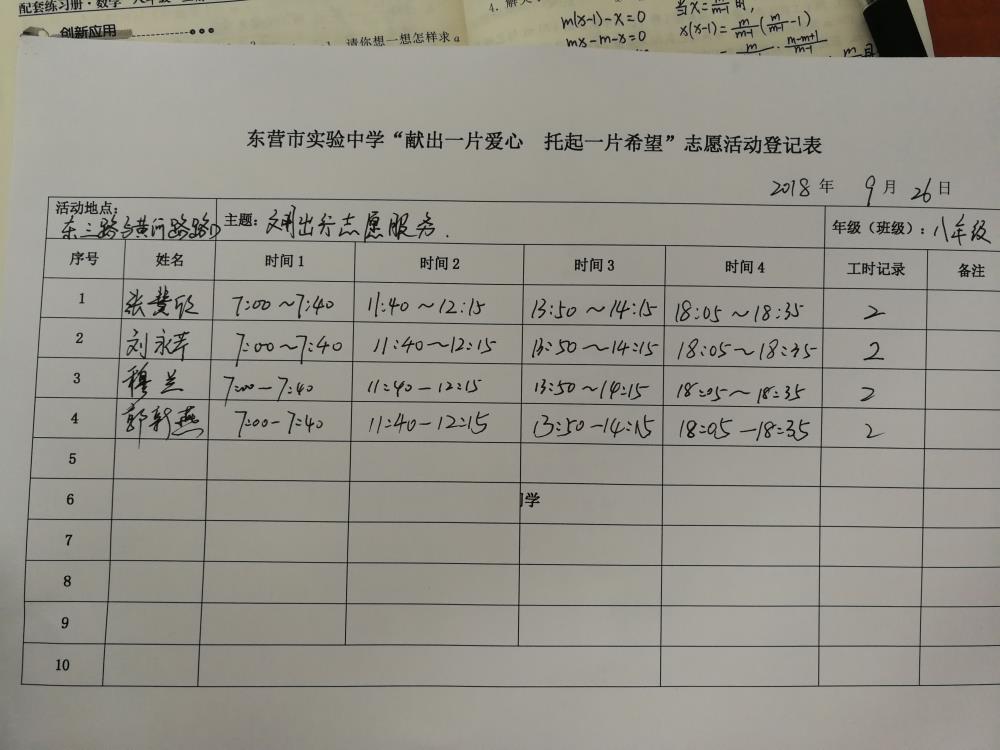 配套练习册·数学
创新应用
请你想一想怎样求a
m(x-1)-x=0
mx-m-x=0
东营市实验中学“献出一片爱心 托起一片希望”志愿活动登记表
2018 年 9 月 26 日
活动地点: 东三路与黄河路路口 主题: 文明出行志愿服务. 年级(班级): 八年级
序号 姓名 时间1 时间2 时间3 时间4 工时记录 备注
1 张慧欣 7:00~7:40 11:40~12:15 13:50~14:15 18:05~18:35 2
2 刘永苹 7:00~7:40 11:40-12:15 13:50~14:15 18:05~18:35 2
3 穆兰 7:00-7:40 11:40-12:15 13:50~14:15 18:05~18:35 2
4 郭新燕 7:00-7:40 11:40-12:15 13:50-14:15 18:05-18:35 2
5
6 学
7
8
9
10